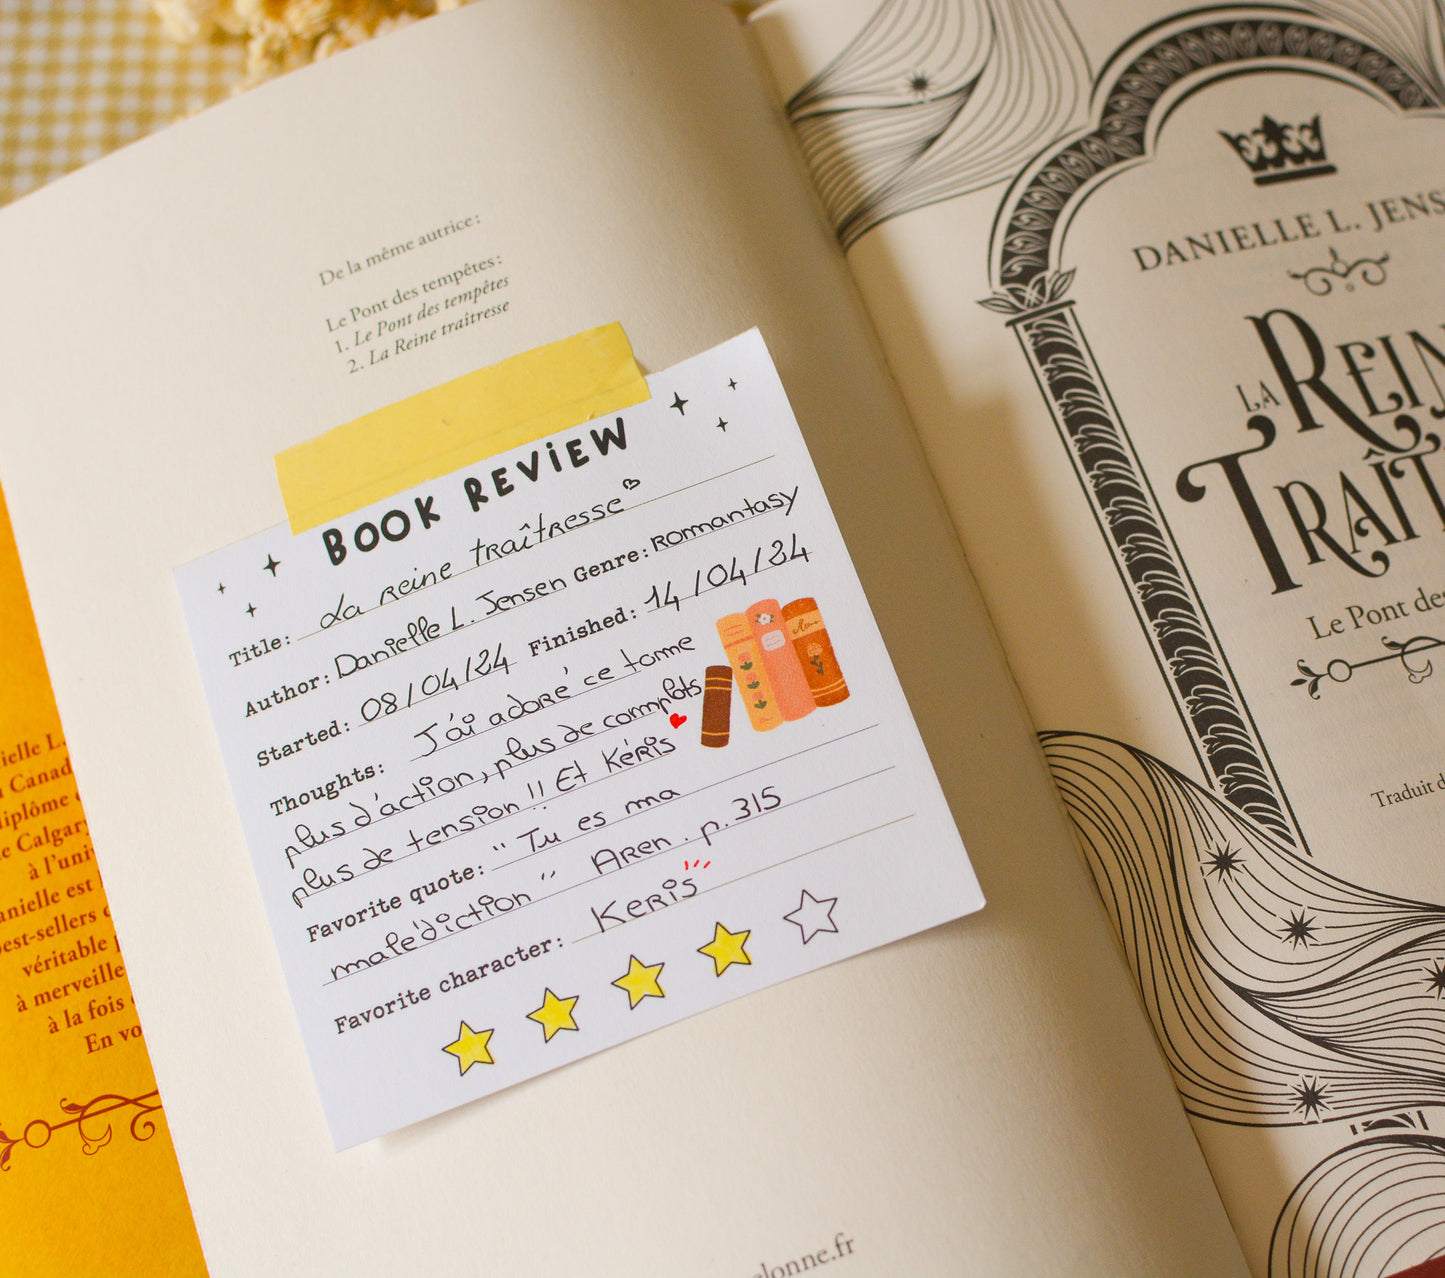 De la même autrice :
Le Pont des tempêtes :
1. Le Pont des tempêtes
2. La Reine traîtresse
BOOK REVIEW
Title: La reine traîtresse
Author: Danielle L. Jensen Genre: Romantasy
Started: 08/04/24 Finished: 14/04/24
Thoughts: J'ai adoré ce tome
plus d'action, plus de complots
plus de tension !! Et Kéris
Favorite quote: "Tu es ma
malédiction" Aren. p.315
Favorite character: Keris
elonne.fr
DANIELLE L. JENS
LA REIN
TRAÎT
Le Pont des
Traduit d
ielle L.
Canad
diplôme
e Calgary
à l'univ
anielle est
best-sellers
véritable
à merveille
à la fois
En vo